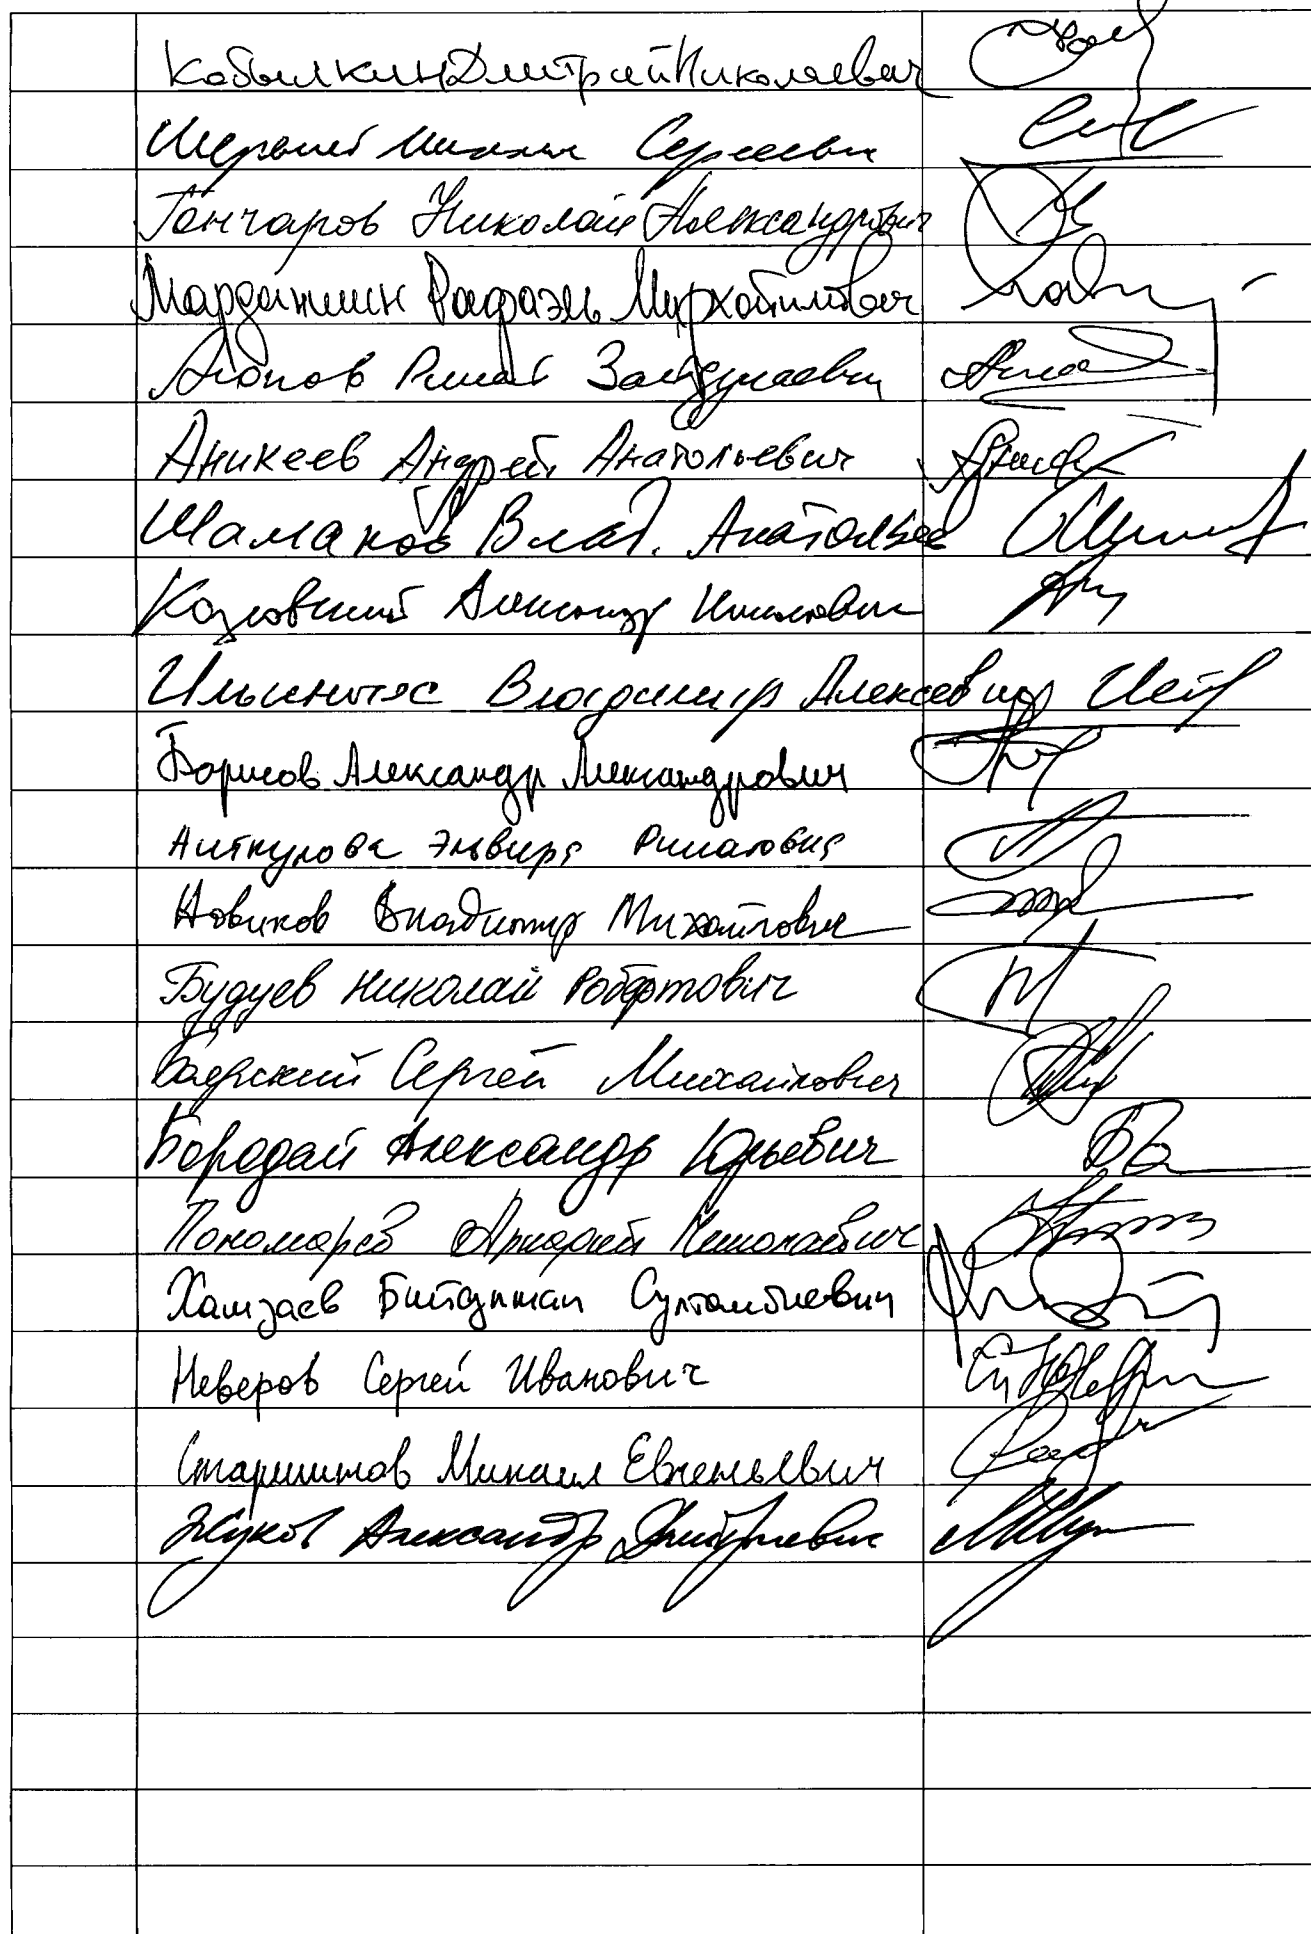 Кобылкин Дмитрий Николаевич
Шеремет Михаил Сергеевич
Гончаров Николай Александрович
Марданшин Рафаэль Мирхатимович
Аюпов Ринат Зайдулаевич
Аникеев Андрей Анатольевич
Шаманов Влад. Анатолье
Козловский Александр Николаевич
Ильиных Владимир Алексеевич
Борисов Александр Александрович
Аиткулова Эльвира Ринатовна
Новиков Владимир Михайлович
Будуев Николай Робертович
Боярский Сергей Михайлович
Бородай Александр Юрьевич
Пономарёв Аркадий Николаевич
Хамзаев Бийсултан Султанбиевич
Неверов Сергей Иванович
Старшинов Михаил Евгеньевич
Жуков Александр Дмитриевич